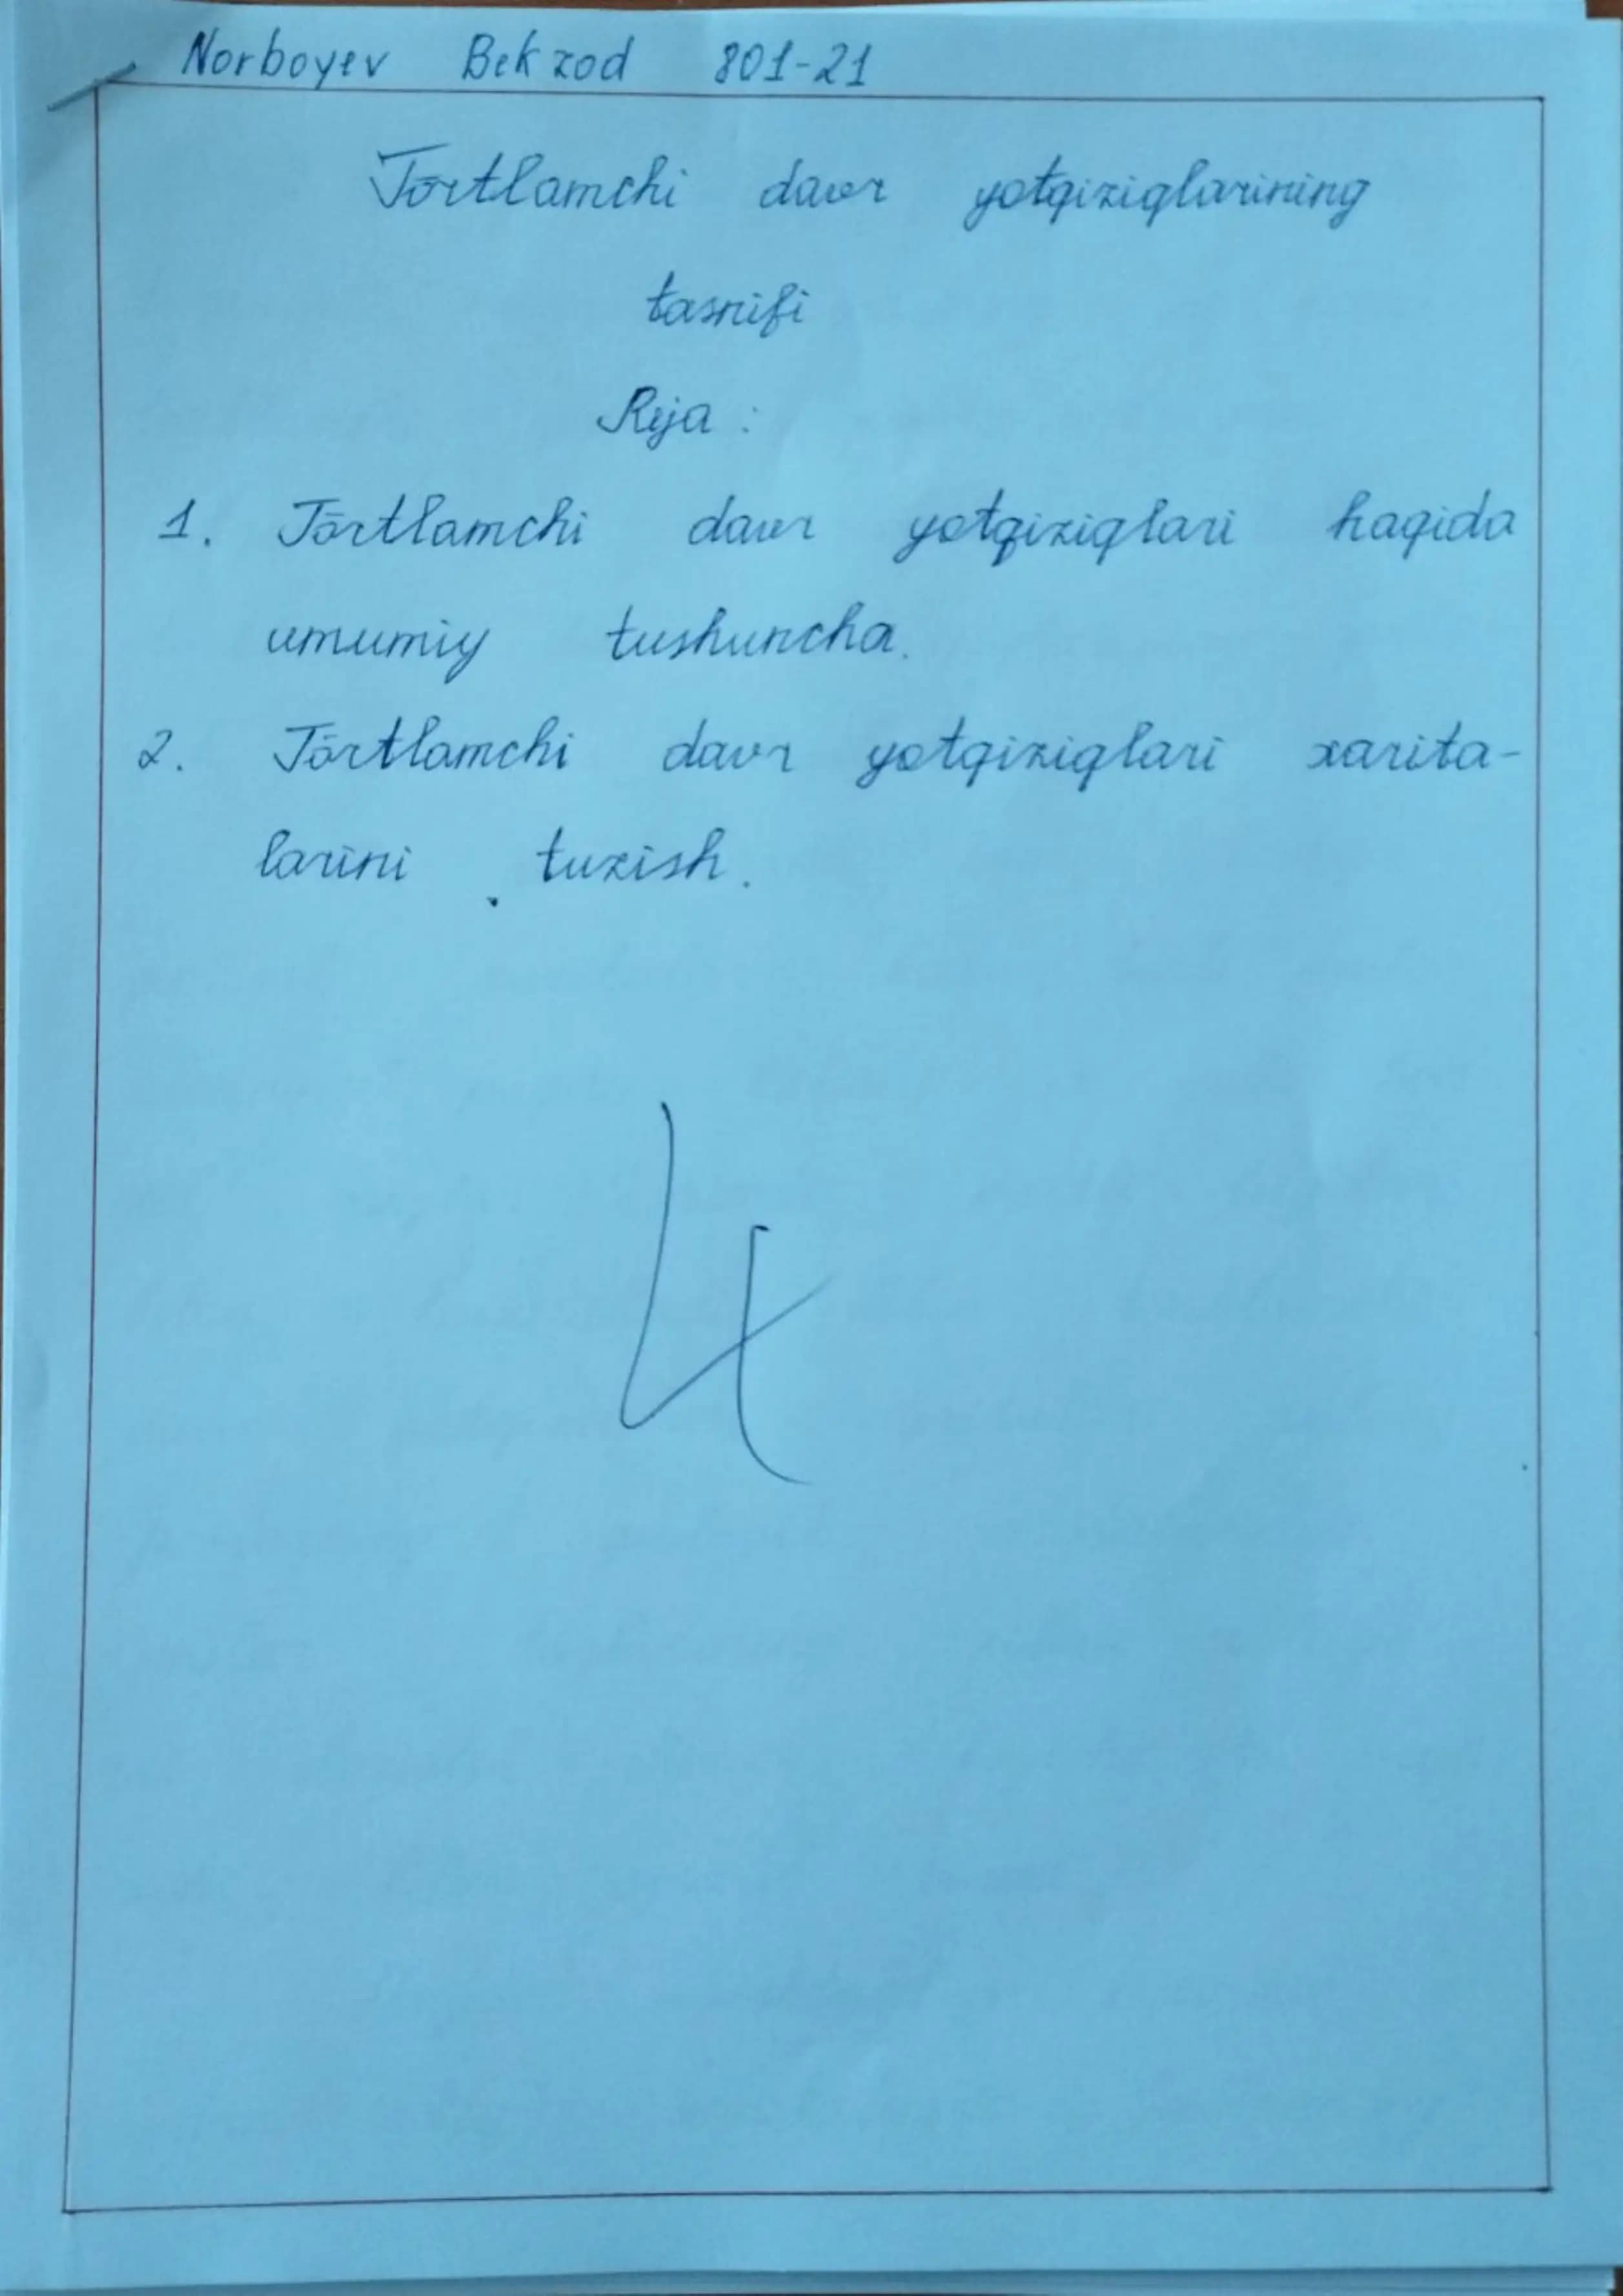 Norboyev Bekzod 801-21
Tōrtlamchi davr yotqiziqlarining
tasnifi
Reja :
1. Tōrtlamchi davr yotqiziqlari haqida
umumiy tushuncha.
2. Tōrtlamchi davr yotqiziqlari xarita-
larini tuzish.
4